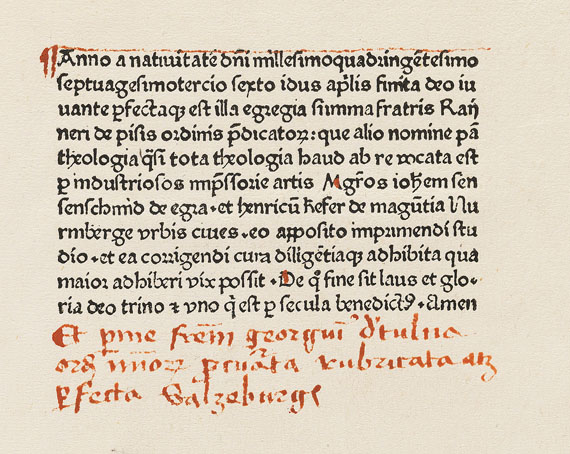 ¶Anno a natiuitate dn̄i millesimoquadringētesimo
septuagesimotercio sexto idus ap̄lis finita deo iu
uante ꝑfectaqꝫ est illa egregia summa fratris Raȳ
neri de pisis ordinis p̄dicatoꝝ: que alio nomine pā
theologia q̄si tota theologia haud ab re vocata est
ꝑ industriosos imp̄ssorie artis Mgr̄os ioh̄em sen
senschmid de egra · et henricū kefer de magūtia Nu
rmberge vrbis ciues · eo apposito imprimendi stu
dio · et ea corrigendi cura diligētiaqꝫ adhibita qua
maior adhiberi vix possit · De qͦ fine sit laus et glo-
ria deo trino ⁊ vno q̄ est ꝑ secula benedictꝰ · Amen
Et pm̄e frēm georgiū d'tulna
ord̄ mīoꝝ rubricata atqꝫ
ꝑfecta Salzeburge